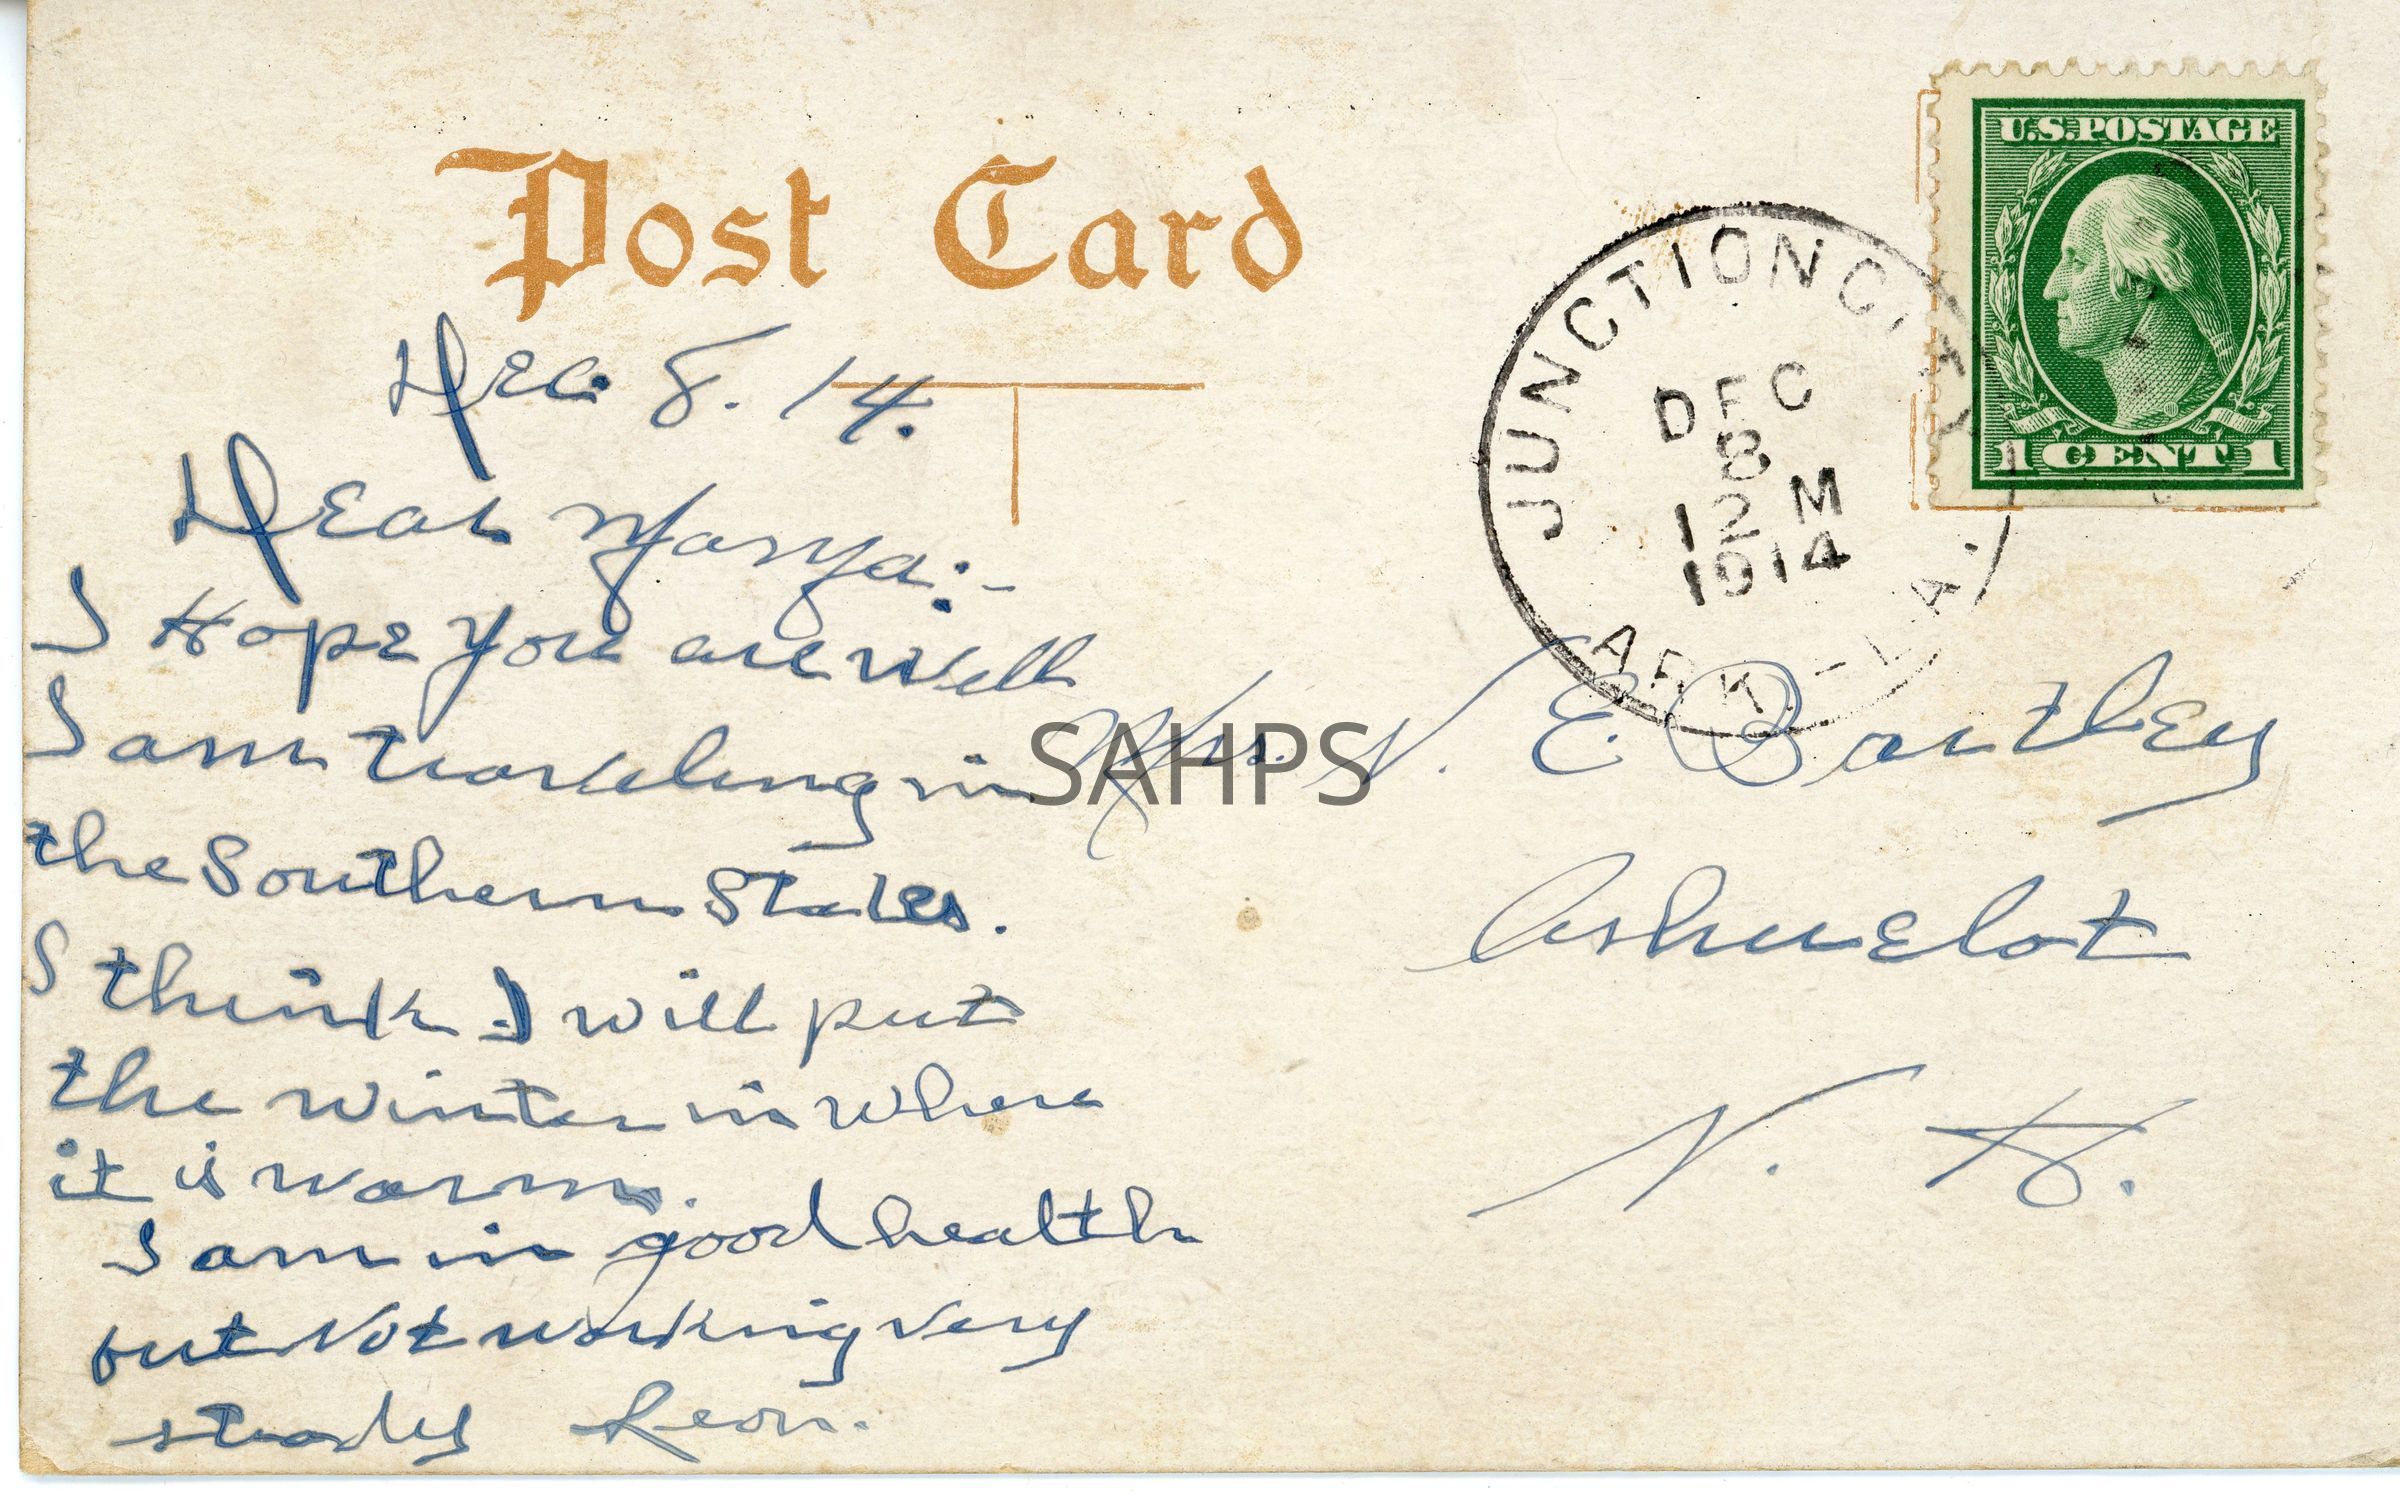 Post Card
U.S. POSTAGE
1 CENT 1
JUNCTION CITY
DEC
8
12 M
1914
ARK.-LA.
Dec. 8. 14.
Dear
I Hope you are well
I am traveling in
the Southern States.
I think I will put
the winter in where
it is warm.
I am in good health
but Not working very
steady Leon.
Mrs. N. E. Bartley
Ashuelot
N. H.
SAHPS